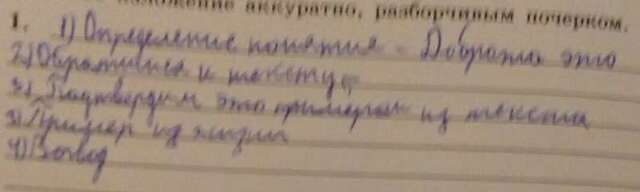 изложение аккуратно, разборчивым почерком.
1. 1) Определение понятия - Доброта это
2) Обратимся к тексту
3) Подтвердим это примером из текста
3) Пример из жизни
4) Вывод